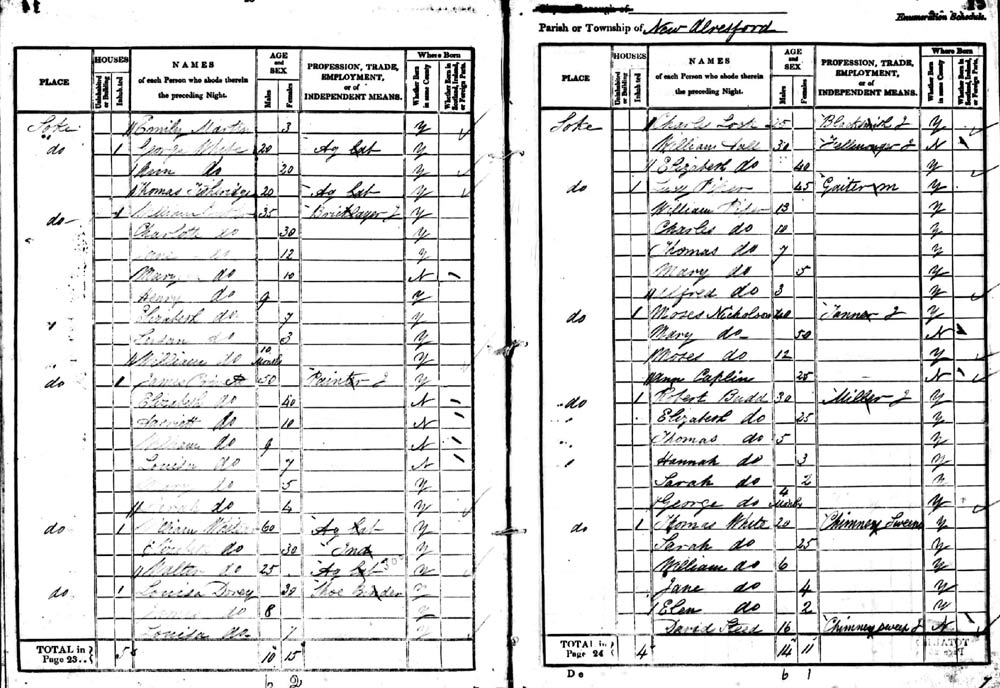 14
PLACE
HOUSES
Uninhabited or Building
Inhabited
NAMES
of each Person who abode therein
the preceding Night.
AGE
and
SEX
Males
Females
PROFESSION, TRADE,
EMPLOYMENT,
or of
INDEPENDENT MEANS.
Where Born
Whether Born in same County
Whether Born in Scotland, Ireland, or Foreign Parts.
Soke Emily Martin 3 y
do 1 George White 20 Ag Lab y
Ann do 20 y
Thomas 20 Ag Lab y
do 1 William 35 Bricklayer J y
Charlotte do 30 y
do 12 y
Mary do 10 N
Henry do 9 y
Elizabeth do 7 y
Susan do 3 y
William do 10 Months y
do 1 James 50 Painter J y
Elizabeth do 40 N
Harriett do 10 N
William do 9 N
Louisa do 7 N
Mary do 5 y
Sarah do 4 y
do 1 William 60 Ag Lab y
Elizabeth do 30 Ind y
Walter do 25 Ag Lab y
do 1 Louisa Dorey 30 Shoe Binder y
do 8 y
Louisa do 7 y
TOTAL in
Page 23 5 10 15
6 2
15
Enumeration Schedule.
Parish or Township of New Alresford
PLACE
HOUSES
Uninhabited or Building
Inhabited
NAMES
of each Person who abode therein
the preceding Night.
AGE
and
SEX
Males
Females
PROFESSION, TRADE,
EMPLOYMENT,
or of
INDEPENDENT MEANS.
Where Born
Whether Born in same County
Whether Born in Scotland, Ireland, or Foreign Parts.
Soke Charles 25 Blacksmith J y
William 30 Fellmonger J N
Elizabeth do 40 y
do 1 Lucy Piper 45 Gaiter m y
William Piper 13 y
Charles do 10 y
Thomas do 7 y
Mary do 5 y
Alfred do 3 y
do 1 Moses Nicholson 40 Tanner J y
Mary do 50 N
Moses do 12 y
Caplin 25 N
do 1 Robert Budd 30 Miller J y
Elizabeth do 25 y
Thomas do 5 y
Hannah do 3 y
Sarah do 2 y
George do 4 Months y
do 1 Thomas White 20 Chimney Sweep y
Sarah do 25 y
William do 6 y
Jane do 4 y
Elen do 2 y
David 16 Chimney sweep J N
TOTAL in
Page 24 4 14 11
De 6 1